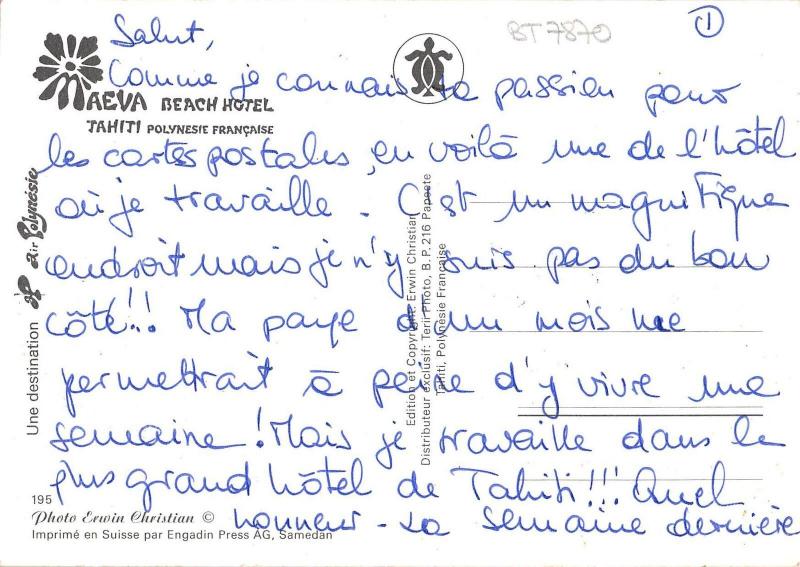 ①
BT 7870
Salut,
Comme je connais ta passion pour
MAEVA BEACH HOTEL
TAHITI POLYNESIE FRANÇAISE
les cartes postales, en voilà une de l'hôtel
où je travaille - C'est un magnifique
endroit mais je n'y suis pas du bon
côté!! Ma paye d'un mois me
permettrait à peine d'y vivre une
semaine! Mais je travaille dans le
plus grand hôtel de Tahiti!!! Quel
honneur - La semaine dernière
Une destination Air Polynésie
Edition et Copyright: Erwin Christian
Distributeur exclusif: Terii Photo, B.P. 216 Papeete
Tahiti, Polynésie Française
195
Photo Erwin Christian ©
Imprimé en Suisse par Engadin Press AG, Samedan